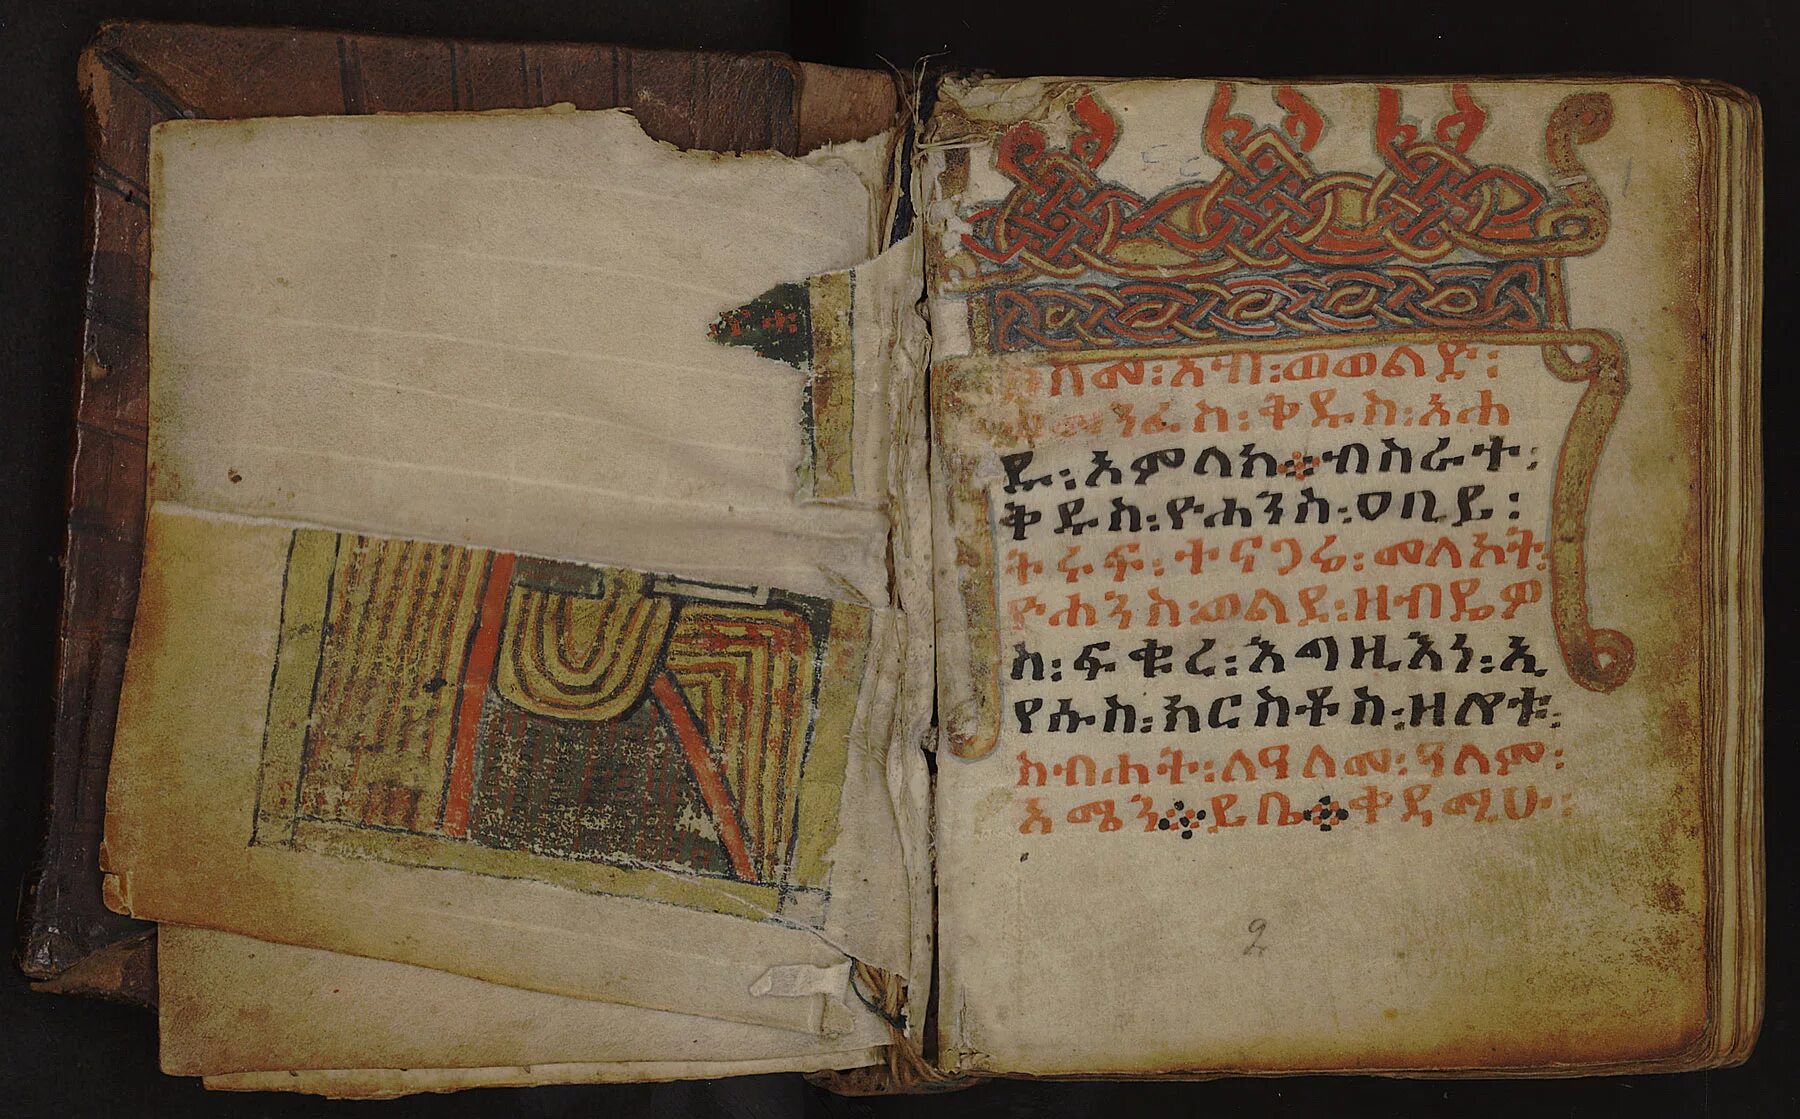 በስመ፡ አብ፡ ወወልድ፡
ወመንፈስ፡ ቅዱስ፡ አሐ
ዱ፡ አምላክ፨ ብስራተ፡
ቅዱስ፡ ዮሐንስ፡ ዐቢይ፡
ትሩፍ፡ ተናጋሬ፡ መለኮት፡
ዮሐንስ፡ ወልደ፡ ዘብዴዎ
ስ፡ ፍቁረ፡ እግዚእነ፡ ኢ
የሱስ፡ ክርስቶስ፡ ዘሎቱ፡
ስብሐት፡ ለዓለመ፡ ዓለም፡
አሜን፨ ይቤ፨ ቀዳሚሁ፡
2